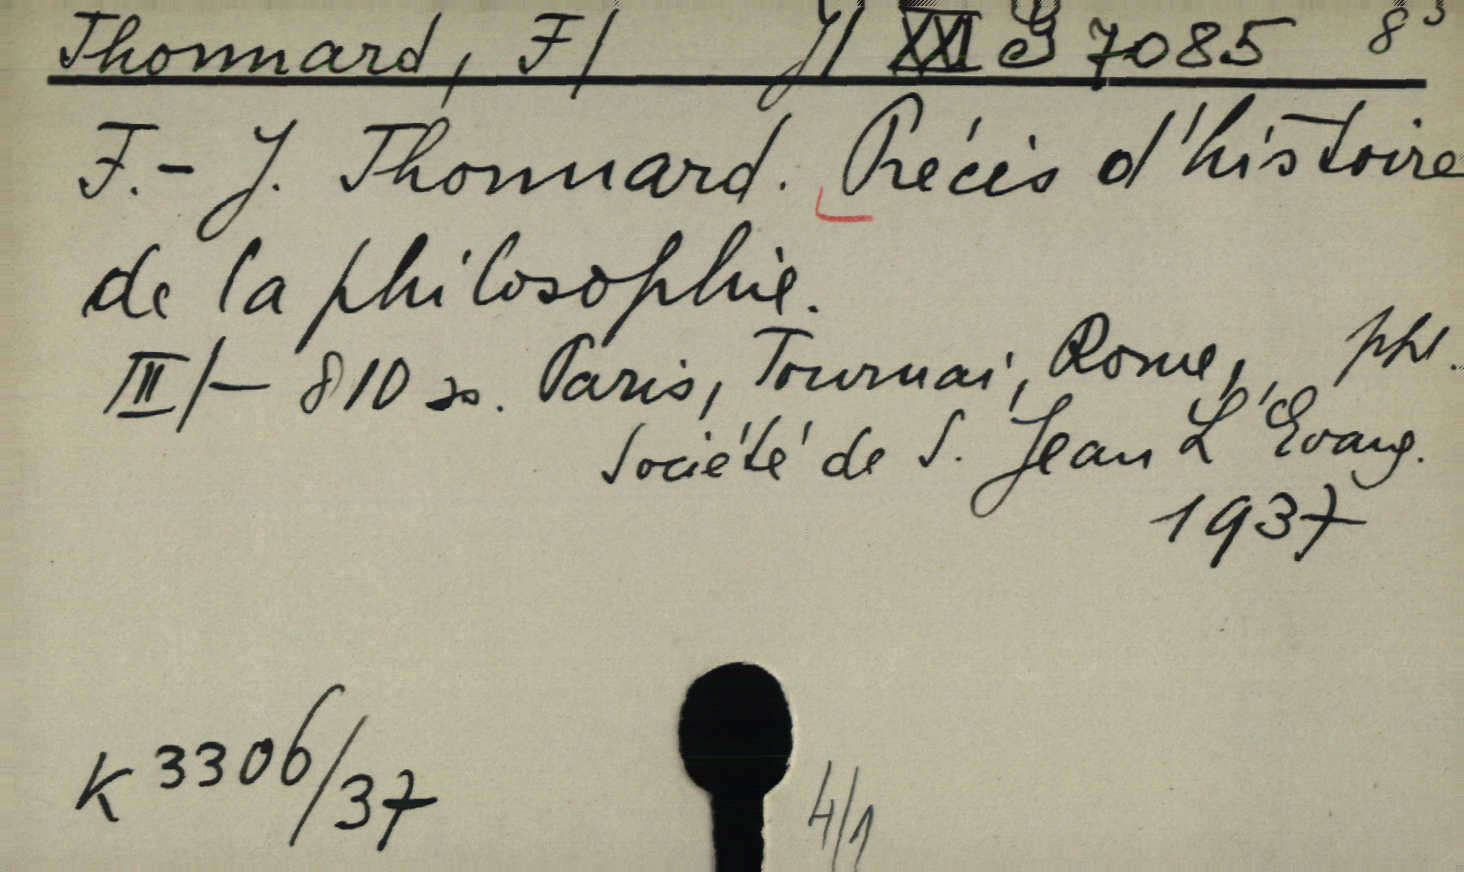 Thonnard, F/ J/ XXI G 7085 8°
F.-J. Thonnard. Précis d'histoire
de la philosophie.
III/- 810 ss. Paris, Tournai, Rome, phl.
Société de S. Jean L'Evang.
1937
K 3306/37
4/1